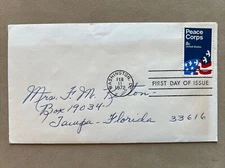 Peace
Corps
8c
United States
WASHINGTON, DC
FEB
11
1972
FIRST DAY OF ISSUE
Mrs. F. M.
Box 19034
Tampa - Florida 33616